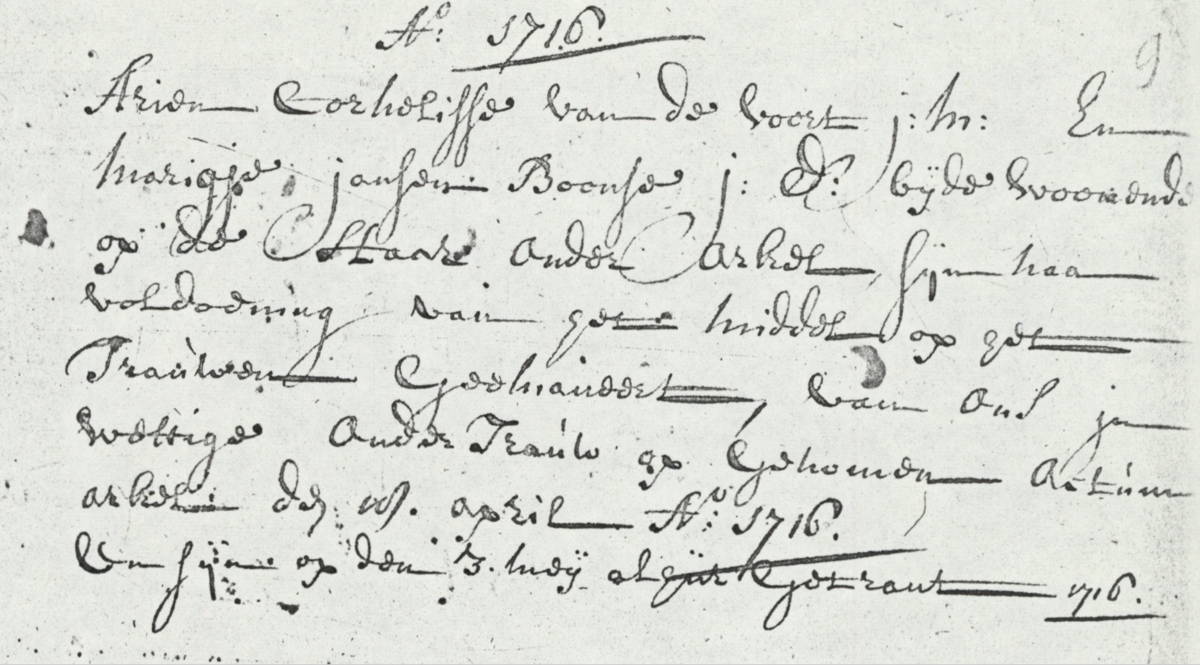 Ao: 1716.
Arien Cornelisse van de voort j: m: En
marigje jansen Boonse j: d: byde woonende
op de Haar onder Arkel syn naa
voldoening van het middel op het
Trauwen Geelnaneert, van ons in
wettige onder Trauw op Genomen Actum
arkel den 18. april Ao: 1716.
En syn op den 3. mey alhier Getrout 1716.